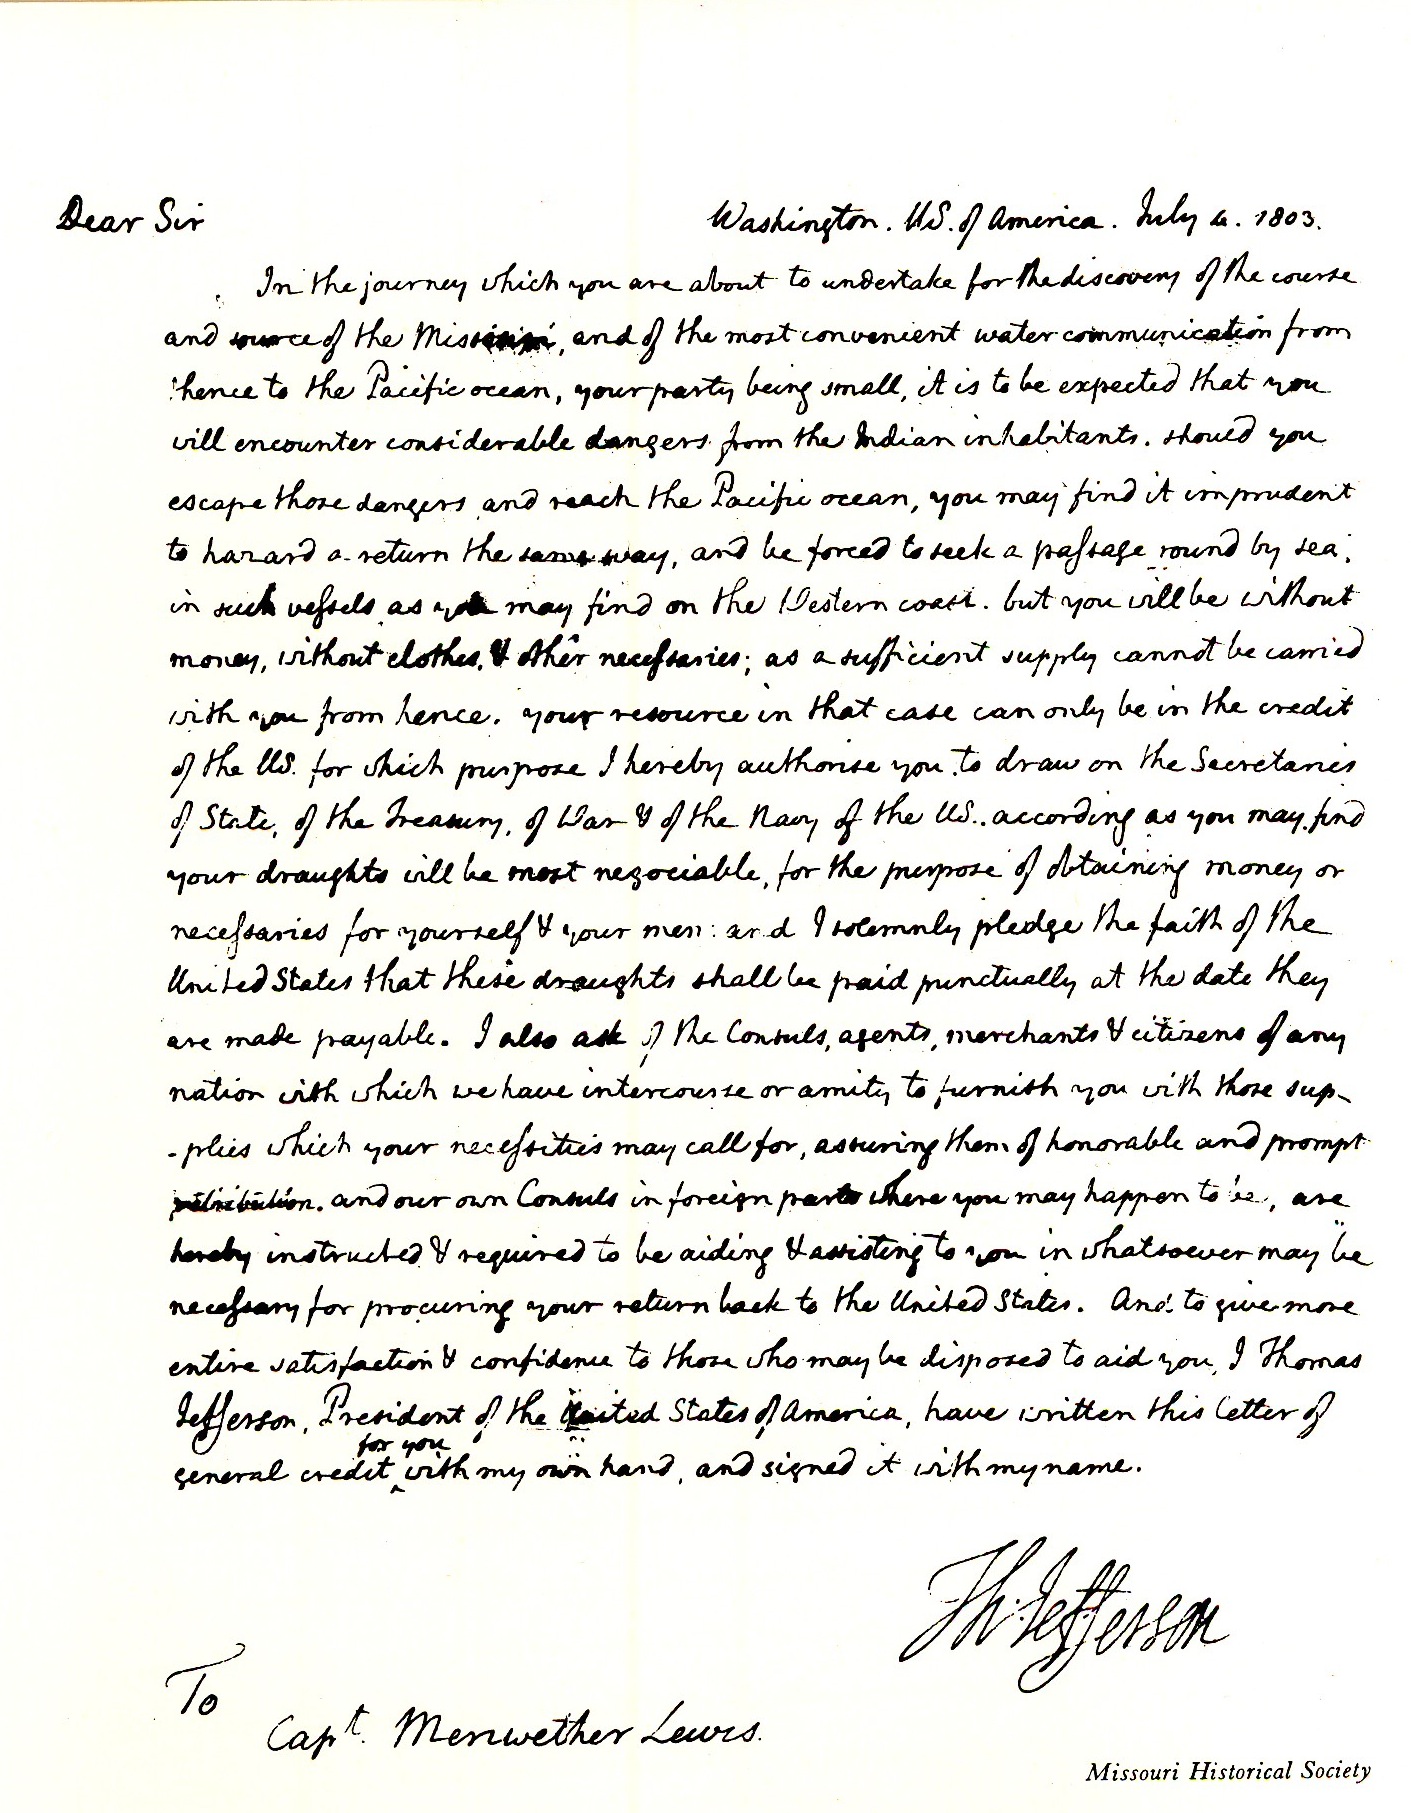 Dear Sir
Washington. US. of America. July 4. 1803.
In the journey which you are about to undertake for the discovery of the course
and source of the Missisipi, and of the most convenient water communication from
thence to the Pacific ocean, your party being small, it is to be expected that you
will encounter considerable dangers from the Indian inhabitants. should you
escape those dangers and reach the Pacific ocean, you may find it imprudent
to hazard a return the same way, and be forced to seek a passage round by sea,
in such vessels as you may find on the Western coast. but you will be without
money, without clothes, & other necessaries; as a sufficient supply cannot be carried
with you from hence. your resource in that case can only be in the credit
of the US. for which purpose I hereby authorise you to draw on the Secretaries
of State, of the Treasury, of War & of the Navy of the US. according as you may find
your draughts will be most negociable, for the purpose of obtaining money or
necessaries for yourself & your men: and I solemnly pledge the faith of the
United States that these draughts shall be paid punctually at the date they
are made payable. I also ask of the Consuls, agents, merchants & citizens of any
nation with which we have intercourse or amity to furnish you with those sup-
-plies which your necessities may call for, assuring them of honorable and prompt
retribution. and our own Consuls in foreign parts where you may happen to be, are
hereby instructed & required to be aiding & assisting to you in whatsoever may be
necessary for procuring your return back to the United States. And to give more
entire satisfaction & confidence to those who may be disposed to aid you, I Thomas
Jefferson, President of the United States of America, have written this letter of
general credit for you with my own hand, and signed it with my name.
Th: Jefferson
To
Capt. Meriwether Lewis.
Missouri Historical Society